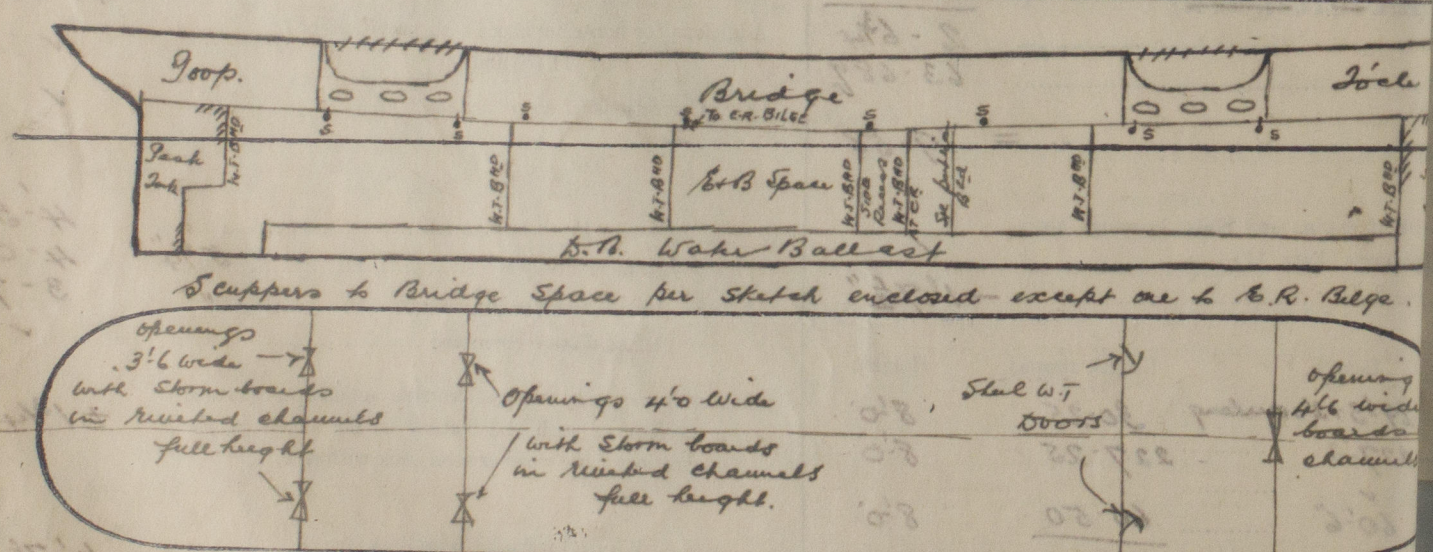 Poop.
Bridge
Fo'cle
S
S
S
S
To E.R. BILGE
S
S
S
S
Peak
Tank
W.T. BHD
W.T. BHD
W.T. BHD
E&B Space
W.T. BHD
SIDE
W.T. BHD
AT CR
W.T. BHD
W.T. BHD
D.B. Water Ballast
Scuppers to Bridge Space per sketch enclosed except one to E.R. Bilge.
openings
3'6 wide
with Storm boards
in riveted channels
full height
Openings 4'0 Wide
with Storm boards
in riveted channels
full height.
Steel W.T
Doors
opening
4'6 wide
boards
channels